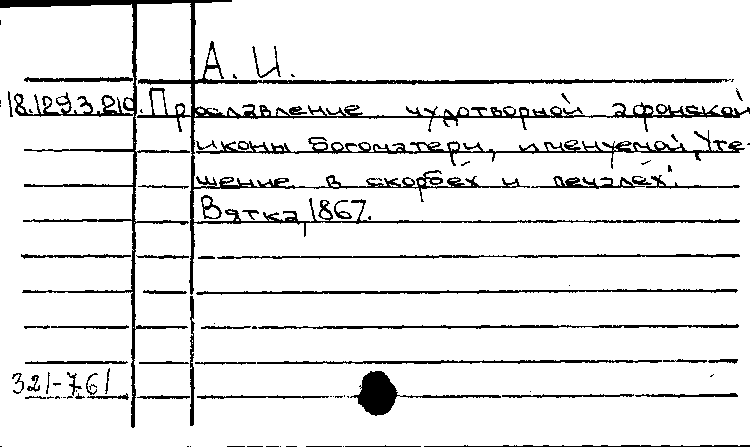 А. И.
18.129.3.210. Прославление чудотворной афонской
иконы Богоматери, именуемой „Уте-
шение в скорбех и печалех".
Вятка, 1867.
321-761